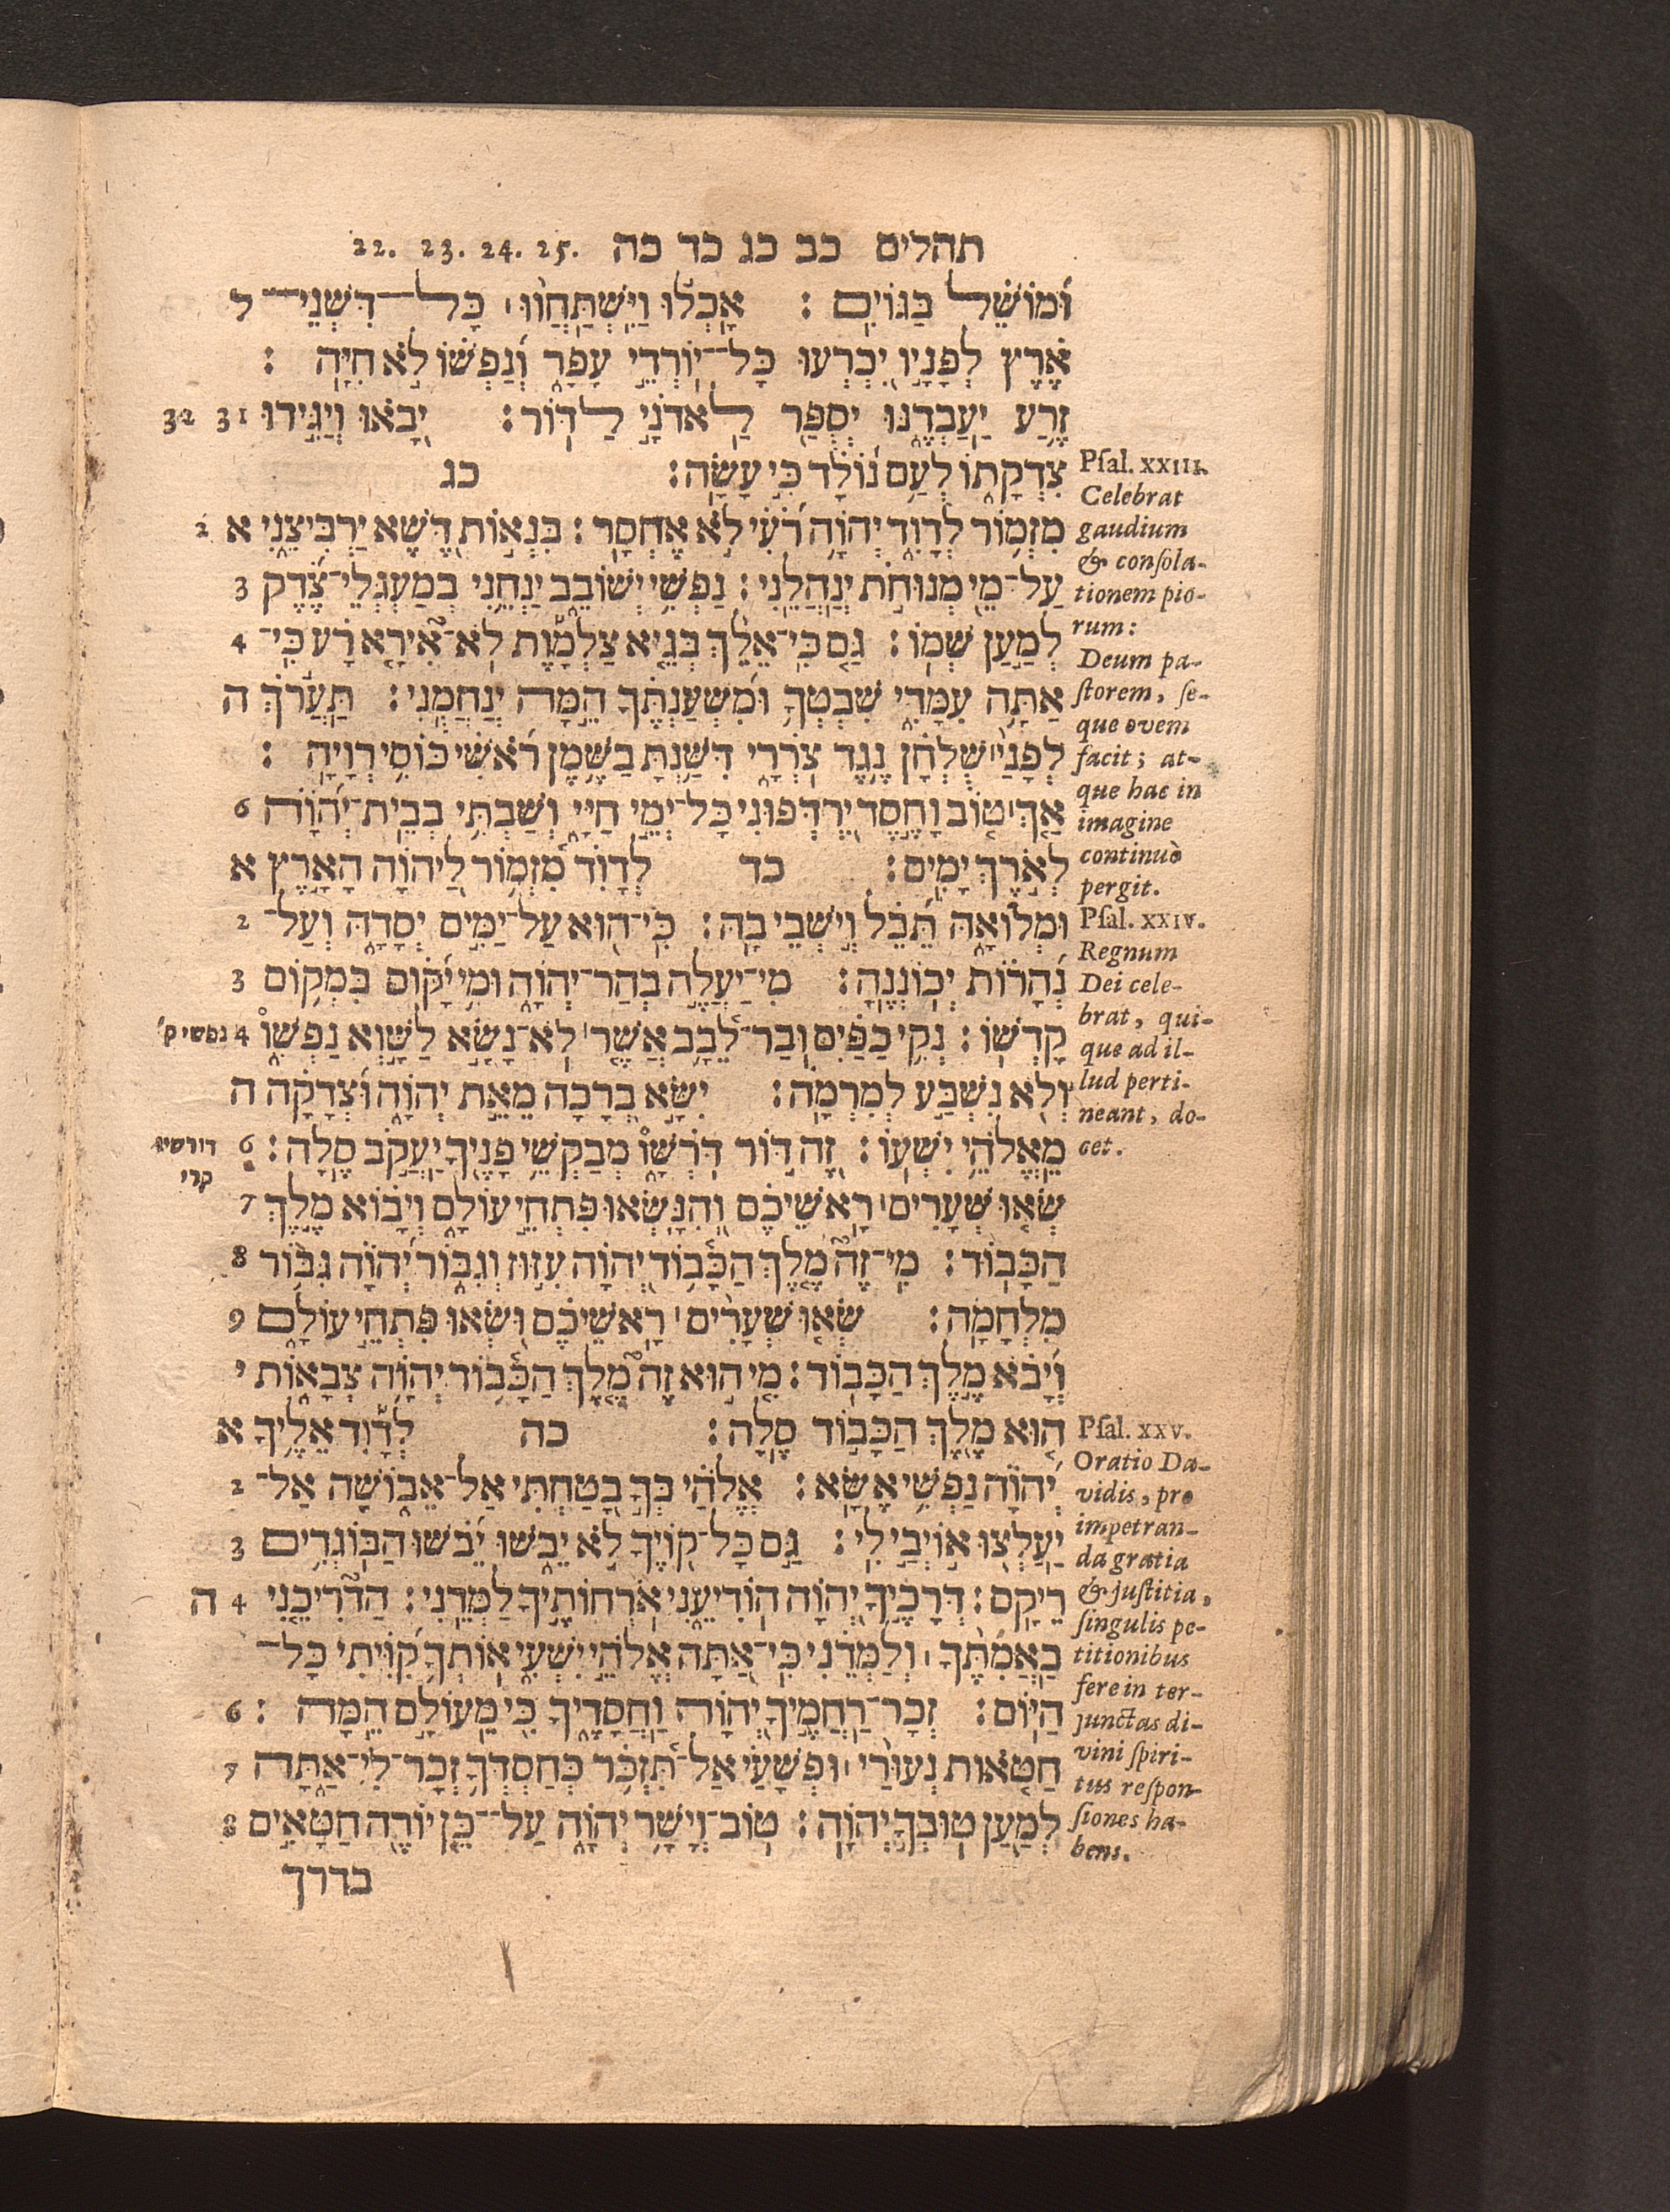 תהלים כב כג כד כה 22. 23. 24. 25.
וּמוֹשֵׁל בַּגּוֹיִם׃ אָכְלוּ וַיִּשְׁתַּחֲווּ ׀ כָּל־דִּשְׁנֵי־ ל
אֶרֶץ לְפָנָיו יִכְרְעוּ כָּל־יוֹרְדֵי עָפָר וְנַפְשׁוֹ לֹא חִיָּה׃
זֶרַע יַעַבְדֶנּוּ יְסֻפַּר לַאדֹנָי לַדּוֹר׃ יָבֹאוּ וְיַגִּידוּ 31 32
צִדְקָתוֹ לְעַם נוֹלָד כִּי עָשָׂה׃ כג
מִזְמוֹר לְדָוִד יְהוָה רֹעִי לֹא אֶחְסָר׃ בִּנְאוֹת דֶּשֶׁא יַרְבִּיצֵנִי א 2
עַל־מֵי מְנוּחֹת יְנַהֲלֵנִי׃ נַפְשִׁי יְשׁוֹבֵב יַנְחֵנִי בְמַעְגְּלֵי־צֶדֶק 3
לְמַעַן שְׁמוֹ׃ גַּם כִּי־אֵלֵךְ בְּגֵיא צַלְמָוֶת לֹא־אִירָא רָע כִּי־ 4
אַתָּה עִמָּדִי שִׁבְטְךָ וּמִשְׁעַנְתֶּךָ הֵמָּה יְנַחֲמֻנִי׃ תַּעֲרֹךְ ה
לְפָנַי ׀ שֻׁלְחָן נֶגֶד צֹרְרָי דִּשַּׁנְתָּ בַשֶּׁמֶן רֹאשִׁי כּוֹסִי רְוָיָה׃
אַךְ ׀ טוֹב וָחֶסֶד יִרְדְּפוּנִי כָּל־יְמֵי חַיָּי וְשַׁבְתִּי בְּבֵית־יְהוָה 6
לְאֹרֶךְ יָמִים׃ כד לְדָוִד מִזְמוֹר לַיהוָה הָאָרֶץ א
וּמְלוֹאָהּ תֵּבֵל וְיֹשְׁבֵי בָהּ׃ כִּי־הוּא עַל־יַמִּים יְסָדָהּ וְעַל־ 2
נְהָרוֹת יְכוֹנְנֶהָ׃ מִי־יַעֲלֶה בְהַר־יְהוָה וּמִי יָקוּם בִּמְקוֹם 3
קָדְשׁוֹ׃ נְקִי כַפַּיִם וּבַר־לֵבָב אֲשֶׁר ׀ לֹא־נָשָׂא לַשָּׁוְא נַפְשׁוֹ 4 נפשי ק׳
וְלֹא נִשְׁבַּע לְמִרְמָה׃ יִשָּׂא בְרָכָה מֵאֵת יְהוָה וּצְדָקָה ה
מֵאֱלֹהֵי יִשְׁעוֹ׃ זֶה דּוֹר דֹּרְשָׁו מְבַקְשֵׁי פָנֶיךָ יַעֲקֹב סֶלָה׃ 6 דורשיו
קרי
שְׂאוּ שְׁעָרִים ׀ רָאשֵׁיכֶם וְהִנָּשְׂאוּ פִּתְחֵי עוֹלָם וְיָבוֹא מֶלֶךְ 7
הַכָּבוֹד׃ מִי־זֶה מֶלֶךְ הַכָּבוֹד יְהוָה עִזּוּז וְגִבּוֹר יְהוָה גִּבּוֹר 8
מִלְחָמָה׃ שְׂאוּ שְׁעָרִים ׀ רָאשֵׁיכֶם וּשְׂאוּ פִּתְחֵי עוֹלָם 9
וְיָבֹא מֶלֶךְ הַכָּבוֹד׃ מִי הוּא זֶה מֶלֶךְ הַכָּבוֹד יְהוָה צְבָאוֹת י
הוּא מֶלֶךְ הַכָּבוֹד סֶלָה׃ כה לְדָוִד אֵלֶיךָ א
יְהוָה נַפְשִׁי אֶשָּׂא׃ אֱלֹהַי בְּךָ בָטַחְתִּי אַל־אֵבוֹשָׁה אַל־ 2
יַעַלְצוּ אוֹיְבַי לִי׃ גַּם כָּל־קוֶֹיךָ לֹא יֵבֹשׁוּ יֵבֹשׁוּ הַבּוֹגְדִים 3
רֵיקָם׃ דְּרָכֶיךָ יְהוָה הוֹדִיעֵנִי אֹרְחוֹתֶיךָ לַמְּדֵנִי׃ הַדְרִיכֵנִי 4 ה
בַאֲמִתֶּךָ ׀ וְלַמְּדֵנִי כִּי־אַתָּה אֱלֹהֵי יִשְׁעִי אוֹתְךָ קִוִּיתִי כָּל־
הַיּוֹם׃ זְכָר־רַחֲמֶיךָ יְהוָה וַחֲסָדֶיךָ כִּי מֵעוֹלָם הֵמָּה׃ 6
חַטֹּאות נְעוּרַי ׀ וּפְשָׁעַי אַל־תִּזְכֹּר כְּחַסְדְּךָ זְכָר־לִי־אַתָּה 7
לְמַעַן טוּבְךָ יְהוָה׃ טוֹב־וְיָשָׁר יְהוָה עַל־כֵּן יוֹרֶה חַטָּאִים 8
בדרך
Psal. XXIII.
Celebrat
gaudium
& consola-
tionem pio-
rum:
Deum pa-
storem, se-
que ovem
facit; at-
que hac in
imagine
continuò
pergit.
Psal. XXIV.
Regnum
Dei cele-
brat, qui-
que ad il-
lud perti-
neant, do-
cet.
Psal. XXV.
Oratio Da-
vidis, pro
impetran-
da gratia
& justitia,
singulis pe-
titionibus
fere in ter-
junctas di-
vini spiri-
tus respon-
siones ha-
bens.